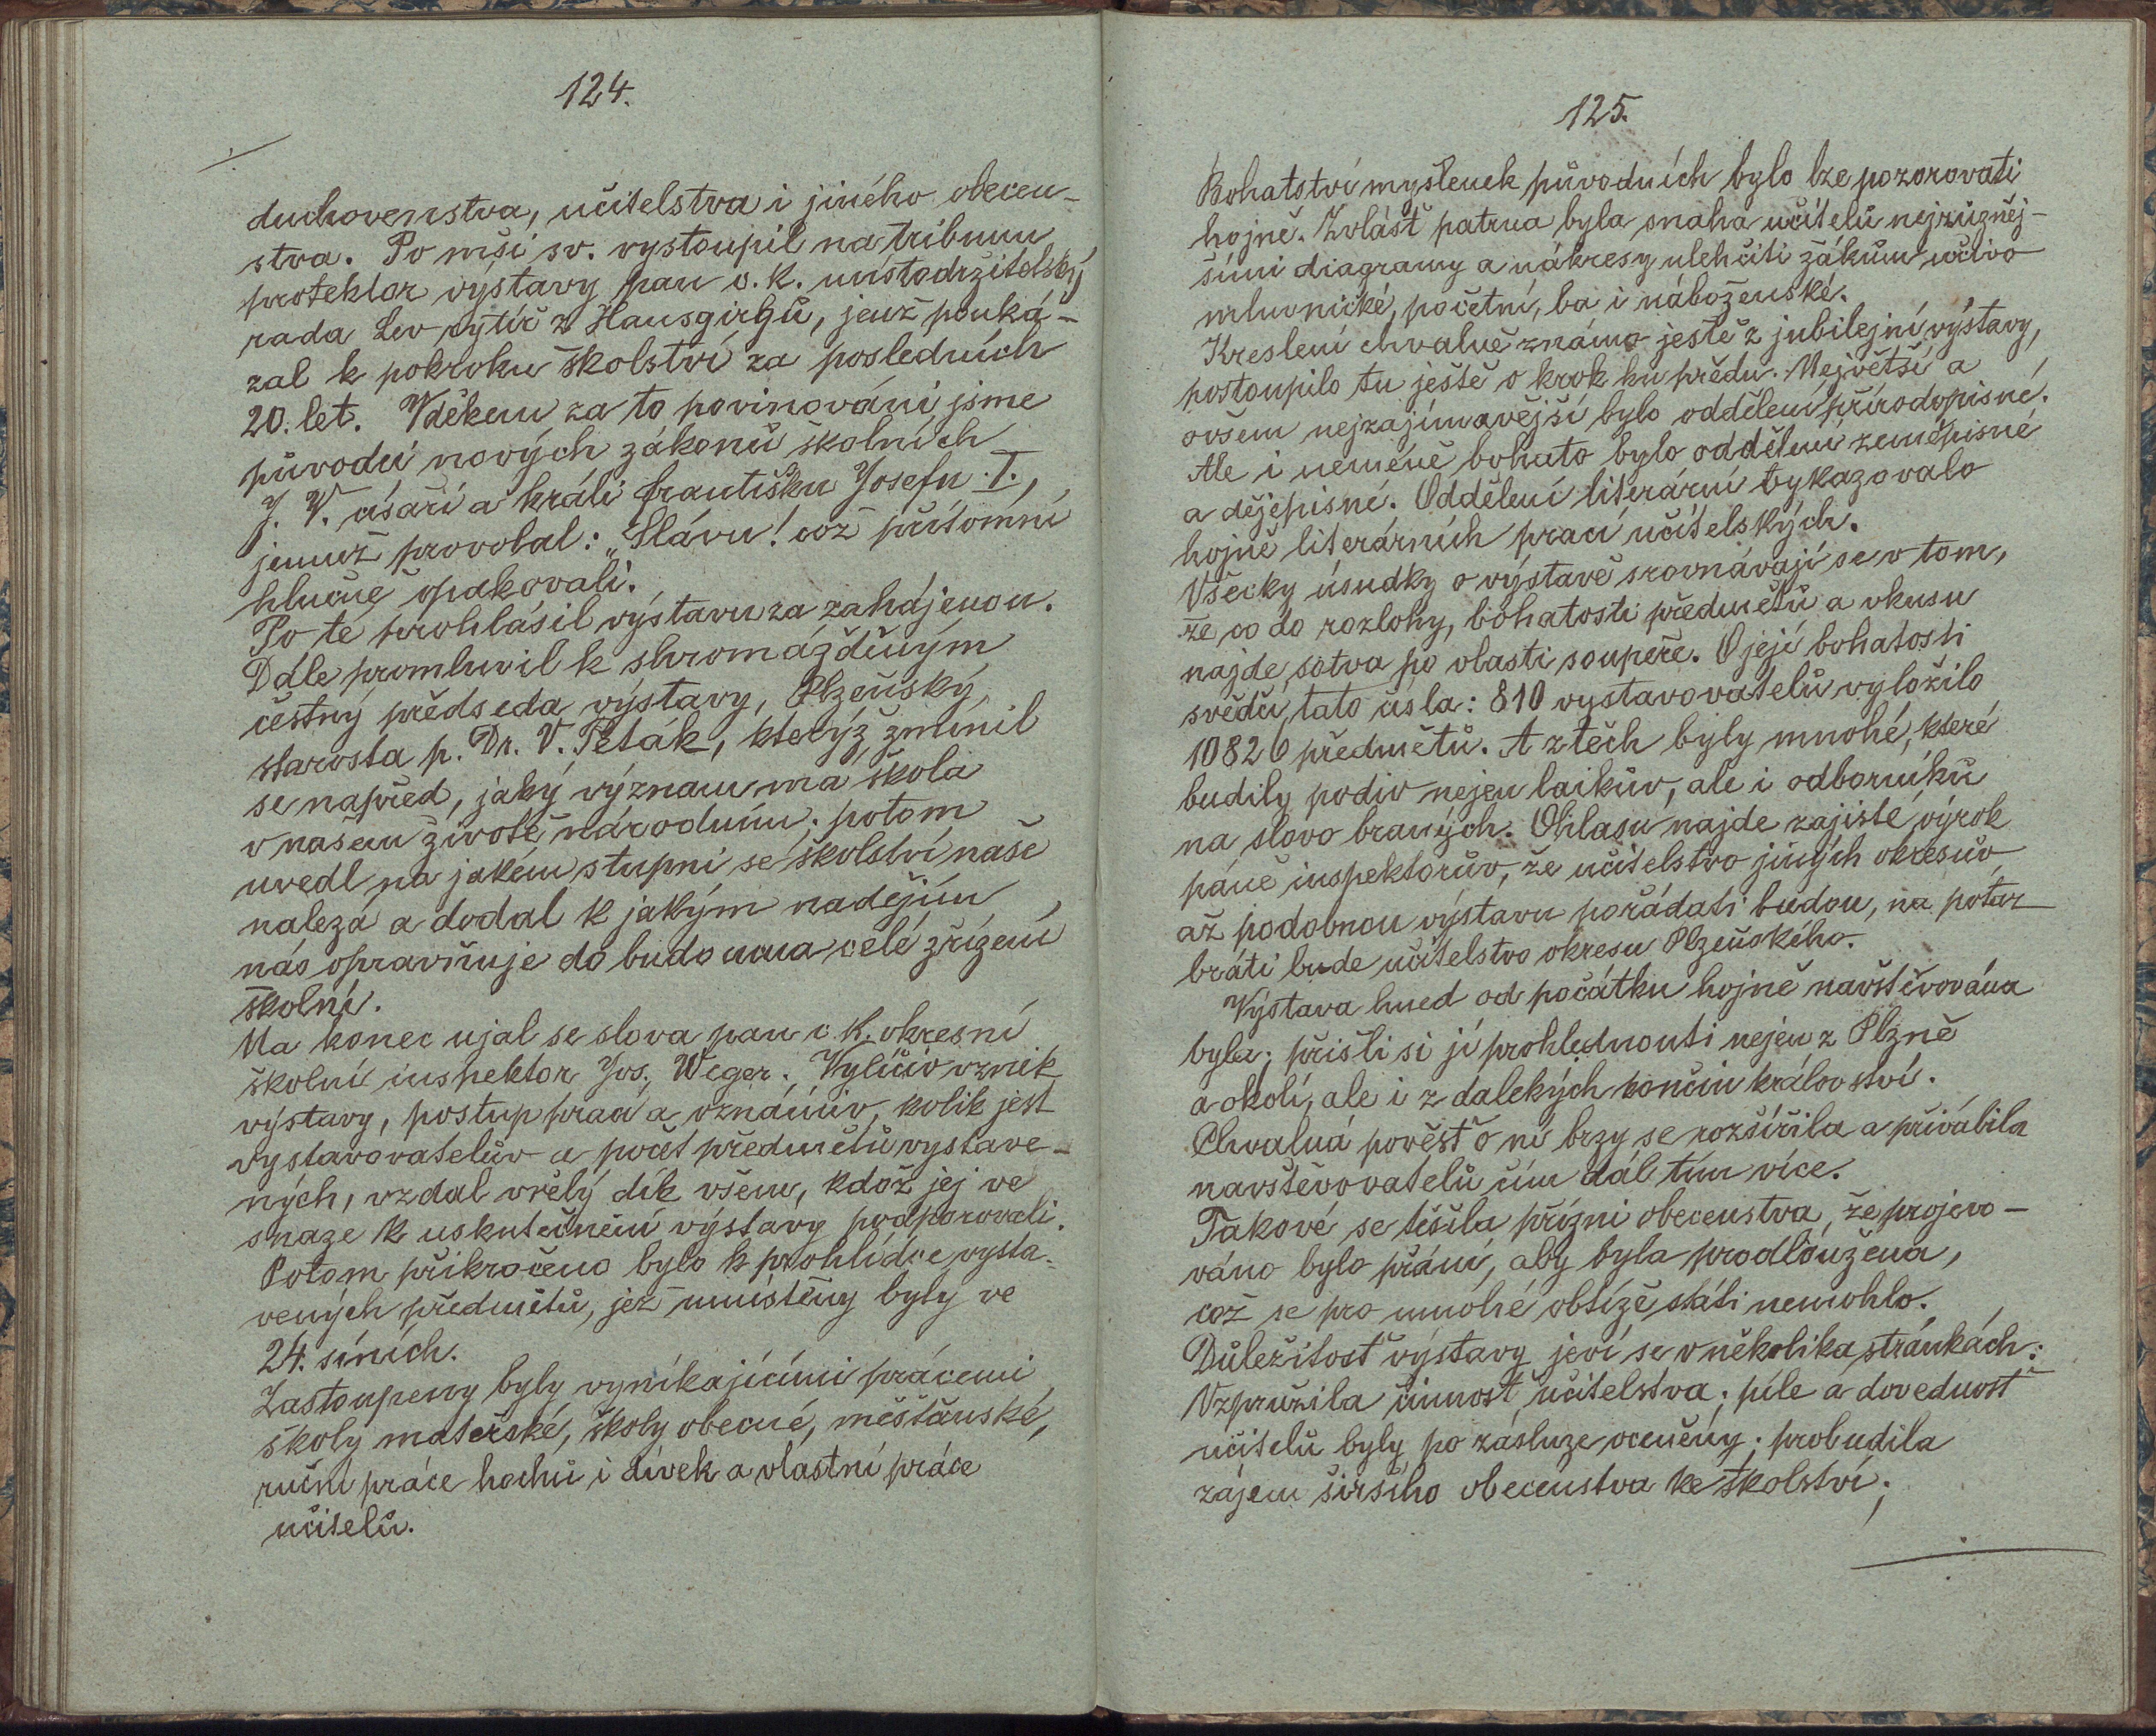 124.
duchovenstva, učitelstva i jiného obecen-
stva. Po mši sv. vystoupil na tribunu
protektor výstavy pan c. k. místodržitelský
rada Lev rytíř z Hausgirgů, jenž pouká-
zal k pokroku školství za posledních
20. let. Vděkem za to povinováni jsme
původci nových zákonů školních
J. V. císaři a králi Františku Josefu I.,
jemuž provolal: „Slávu! což přítomní
hlučně opakovali.
Po té prohlásil výstavu za zahájenou.
Dále promluvil k shromážděným
čestný předseda výstavy, Plzeňský
starosta p. Dr. V. Peták, kterýž zmínil
se napřed, jaký význam má škola
v našem životě národním; potom
uvedl na jakém stupni se školství naše
nalezá a dodal k jakým nadějím
nás opravňuje do budoucna celé zřízení
školní.
Na konec ujal se slova pan c. k. okresní
školní inspektor Jos. Weger. Vylíčiv vznik
výstavy, postup prací a oznámiv, kolik jest
vystavovatelův a počet předmětů vystave-
ných, vzdal vřelý dík všem, kdož jej ve
snaze k uskutečnění výstavy podporovali.
Potom přikročeno bylo k prohlídce vysta-
vených předmětů, jež umístěny byly ve
24. síních.
Zastoupeny byly vynikajícími pracemi
školy mateřské, školy obecné, měšťanské,
ruční práce hochů i dívek a vlastní práce
učitelů.
125.
Bohatství myšlenek původních bylo lze pozorovati
hojně. Zvlášť patrna byla snaha učitelů nejrůzněj-
šími diagramy a nákresy ulehčiti žákům učivo
mluvnické, početní, ba i náboženské.
Kreslení chvalně známo ještě z jubilejní výstavy,
postoupilo tu ještě o krok ku předu. Největší a
ovšem nejzajímavější bylo oddělení přírodopisné.
Ale i neméně bohato bylo oddělení zeměpisné
a dějepisné. Oddělení literární vykazovalo
hojně literárních prací učitelských.
Všecky úsudky o výstavě srovnávají se v tom,
že co do rozlohy, bohatosti předmětů a vkusu
najde sotva po vlasti soupeře. O její bohatosti
svědčí tato čísla: 810 vystavovatelů vyložilo
10826 předmětů. A z těch byly mnohé, které
budily podiv nejen laikův, ale i odborníků
na slovo braných. Ohlasu najde zajisté výrok
páně inspektorův, že učitelstvo jiných okresův
až podobnou výstavu pořádati budou, na potaz
bráti bude učitelstvo okresu Plzeňského.
Výstava hned od počátku hojně navštěvována
byla; přišli si ji prohlednouti nejen z Plzně
a okolí, ale i z dalekých končin království.
Chvalná pověsť o ní brzy se rozšířila a přivábila
navštěvovatelů čím dál tím více.
Takové se těšila přízni obecenstva, že projevo-
váno bylo přání, aby byla prodloužena,
což se pro mnohé obtíže státi nemohlo.
Důležitosť výstavy jeví se v několika stránkách:
Vzpružila činnosť učitelstva; píle a dovednosť
učitelů byly po zásluze oceněny; probudila
zájem širšího obecenstva ke školství;